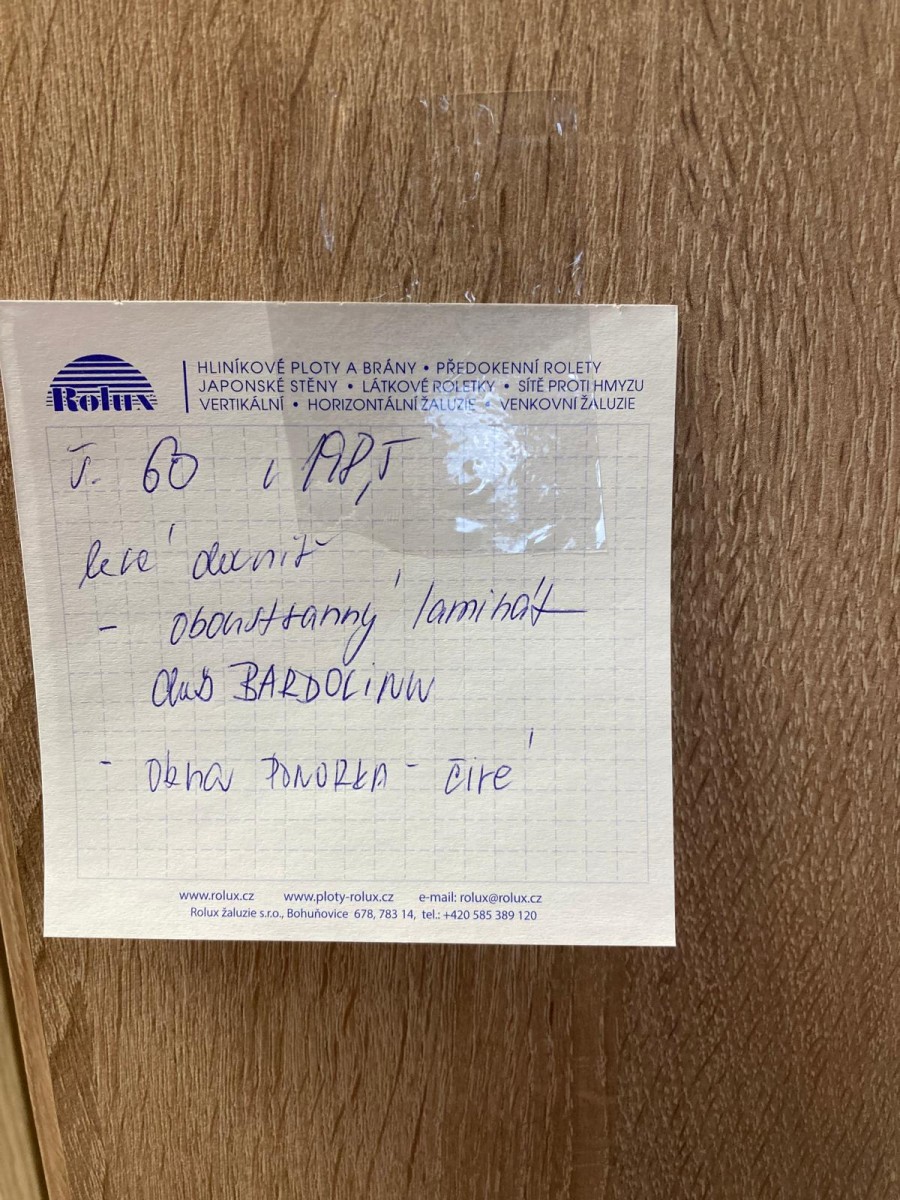 Rolux
HLINÍKOVÉ PLOTY A BRÁNY • PŘEDOKENNÍ ROLETY
JAPONSKÉ STĚNY • LÁTKOVÉ ROLETKY • SÍTĚ PROTI HMYZU
VERTIKÁLNÍ • HORIZONTÁLNÍ ŽALUZIE • VENKOVNÍ ŽALUZIE
š. 60 198,5
levé
- oboustranný laminát
dub BARDOLINO
- okna PONORKA - čiré
www.rolux.cz www.ploty-rolux.cz e-mail: rolux@rolux.cz
Rolux žaluzie s.r.o., Bohuňovice 678, 783 14, tel.: +420 585 389 120